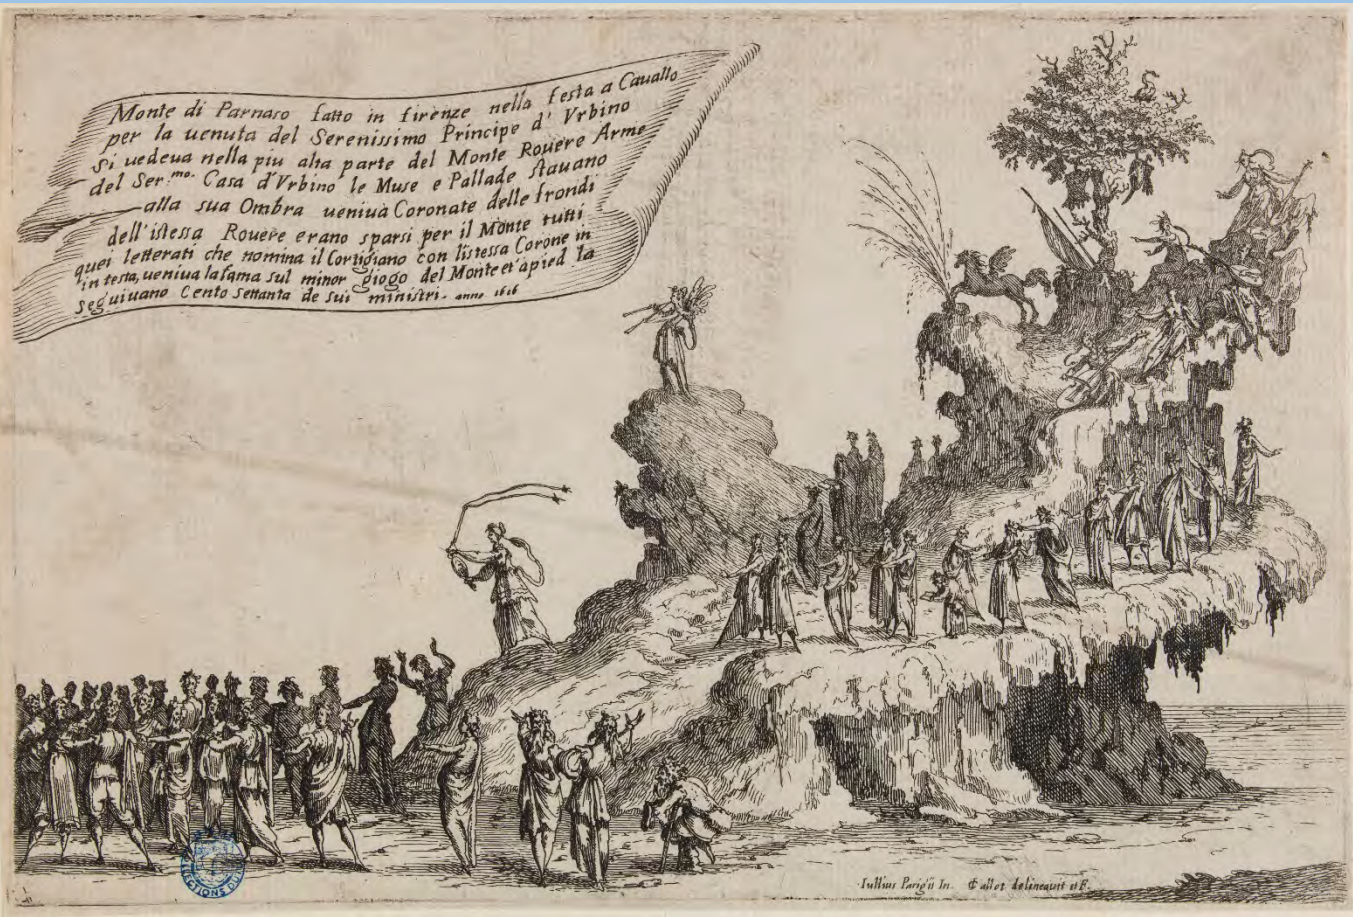 Monte di Parnaso fatto in firenze nella festa a Cauallo
per la uenuta del Serenissimo Principe d' Vrbino
Si uedeua nella piu alta parte del Monte Rouere Arme
del Ser.mo. Casa d'Vrbino le Muse e Pallade stauano
alla sua Ombra ueniua Coronate delle frondi
dell'istessa Rouere erano sparsi per il Monte tutti
quei letterati che nomina il Cortigiano con l'istessa Corone in
in testa, ueniua la fama sul minor giogo del Monte et' a pied la
seguiuano Cento settanta de sui ministri. anno 1616
Iullius Parigii In. Callot delineauit et F.
COLLECTIONS DU